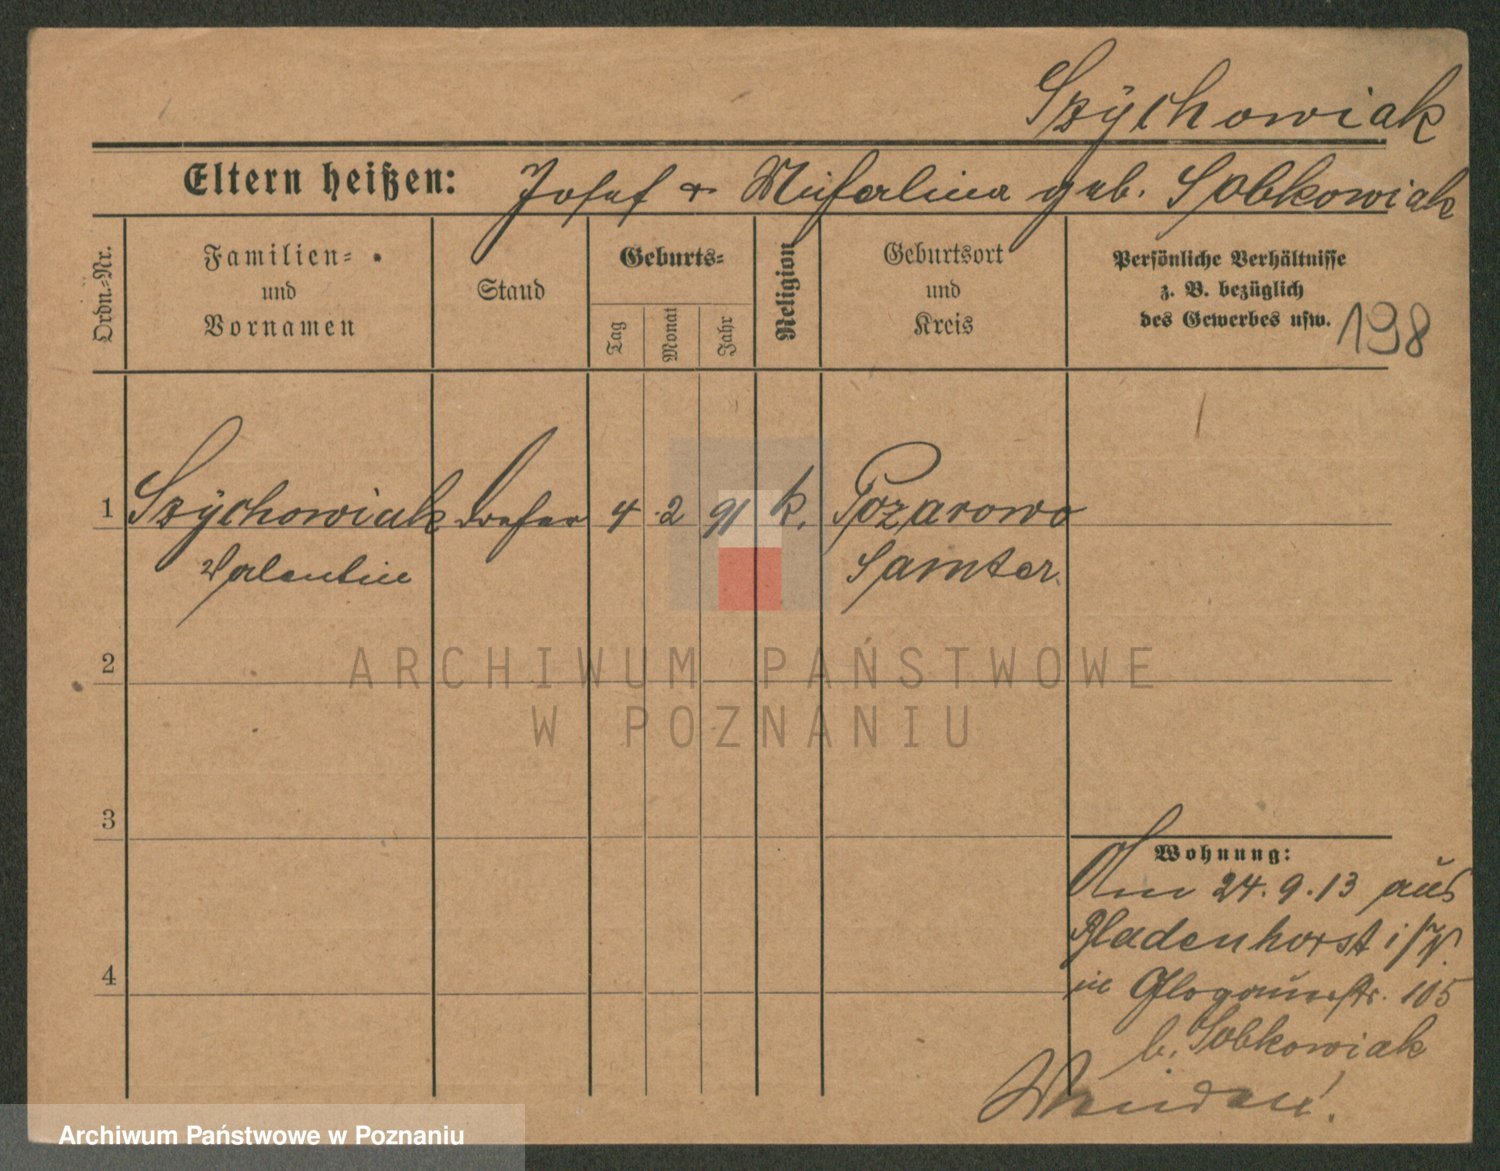 Szÿchowiak
Eltern heißen: Josef & Michalina geb. Sobkowiak
Ordn.-Nr.
Familien-
und
Vornamen
Stand
Geburts-
Tag
Monat
Jahr
Religion
Geburtsort
und
Kreis
Persönliche Verhältnisse
z. B. bezüglich
des Gewerbes usw.
198
1 Szÿchowiak Dreher 4 2 91 k. Pozarowo
Valentin Samter.
2
3
4
Wohnung:
Am 24.9.13 aus
Bladenhorst i/W.
in Glogauerstr. 105
b. Sobkowiak
ARCHIWUM PAŃSTWOWE
W POZNANIU
Archiwum Państwowe w Poznaniu